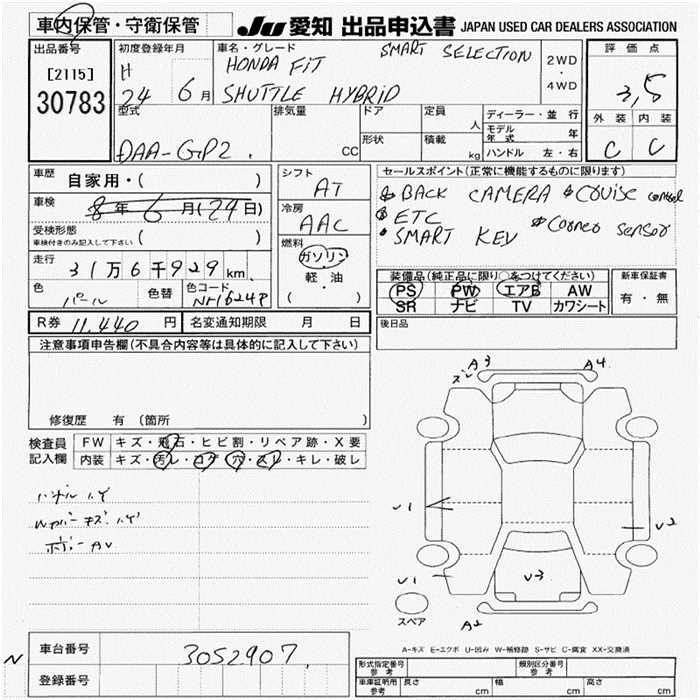 車内保管・守衛保管 JU 愛知 出品申込書 JAPAN USED CAR DEALERS ASSOCIATION
出品番号 初度登録年月 車名・グレード SMART SELECTION 2WD ・ 4WD 評価点
[2115] H HONDA FIT
30783 24 6月 SHUTTLE HYBRID 3,5
型式 排気量 ドア 定員 ディーラー・並行 外装 内装
人 モデル年式 年
DAA-GP2 CC 形状 積載 kg ハンドル 左・右 C C
車歴 自家用・( ) シフト AT セールスポイント(正常に機能するものに限ります)
車検 8年 6月(24日) 冷房 AAC BACK CAMERA CRUISE control
受検形態 ETC Corner Sensor
車検付きのみ記入して下さい ( ) 燃料 SMART KEY
走行 31万6千929km ガソリン 装備品(純正品に限り○をつけてください) 新車保証書
色 パール 色替 色コード NH624P 軽・油 PS PW エアB AW 有・無
( ) SR ナビ TV カワシート
R券 11,440円 名変通知期限 月 日 後日品
注意事項申告欄(不具合内容等は具体的に記入して下さい)
A3 A4
修復歴 有 (箇所 )
検査員 FW キズ・飛石・ヒビ割・リペア跡・X要
記入欄 内装 キズ・汚レ・コゲ・穴・スレ・キレ・破レ
ハンドル ハゲ
U1
U2
ボデー AU
U1 U3
スペア A2
A-キズ E-エクボ U-凹み W-補修跡 S-サビ C-腐食 XX-交換済
N 車台番号 3052907
形式指定番号 参考 類別区分番号 参考
登録番号 車庫証明用 参考 長さ cm 幅 cm 高さ cm